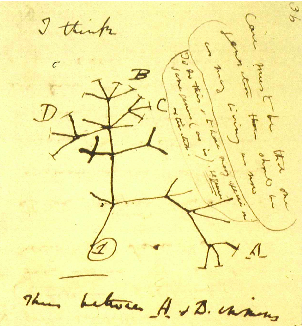 36
I think
Case must be that one
generation then should be
as many living as now
To do this & to have many species in
same genus (as is) requires
extinction
B
C
D
A
1
Thus between A & B.